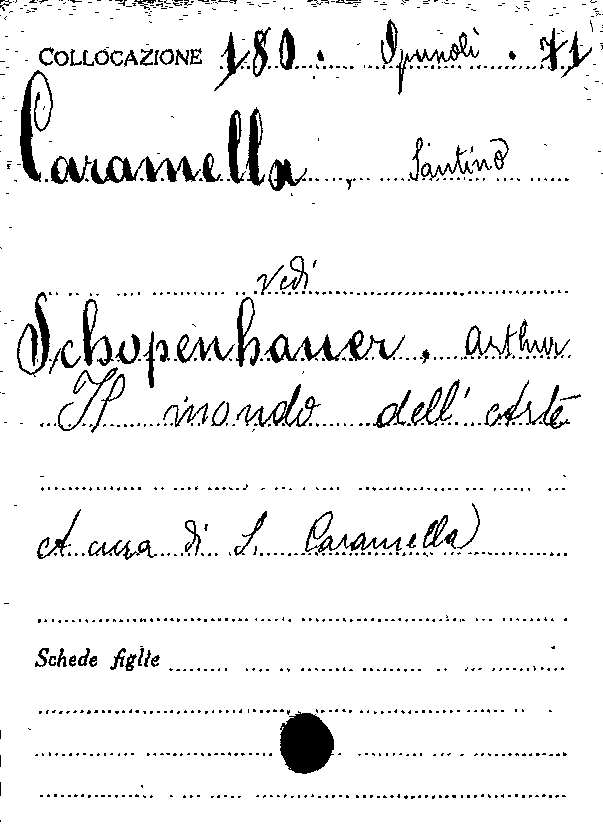 COLLOCAZIONE 180. Opuscoli. 71
Caramella, Santino
vedi
Schopenhauer, Arthur
Il mondo dell'Arte
A cura di S. Caramella
Schede figlie